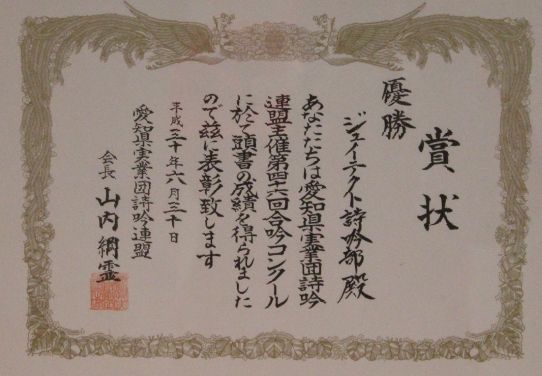 賞状
優勝
ジェイテクト詩吟部殿
あなたたちは愛知県実業団詩吟
連盟主催第四十六回合吟コンクール
に於て頭書の成績を得られました
ので茲に表彰致します
平成三十年六月三十日
愛知県実業団詩吟連盟
会長 山内綱霊